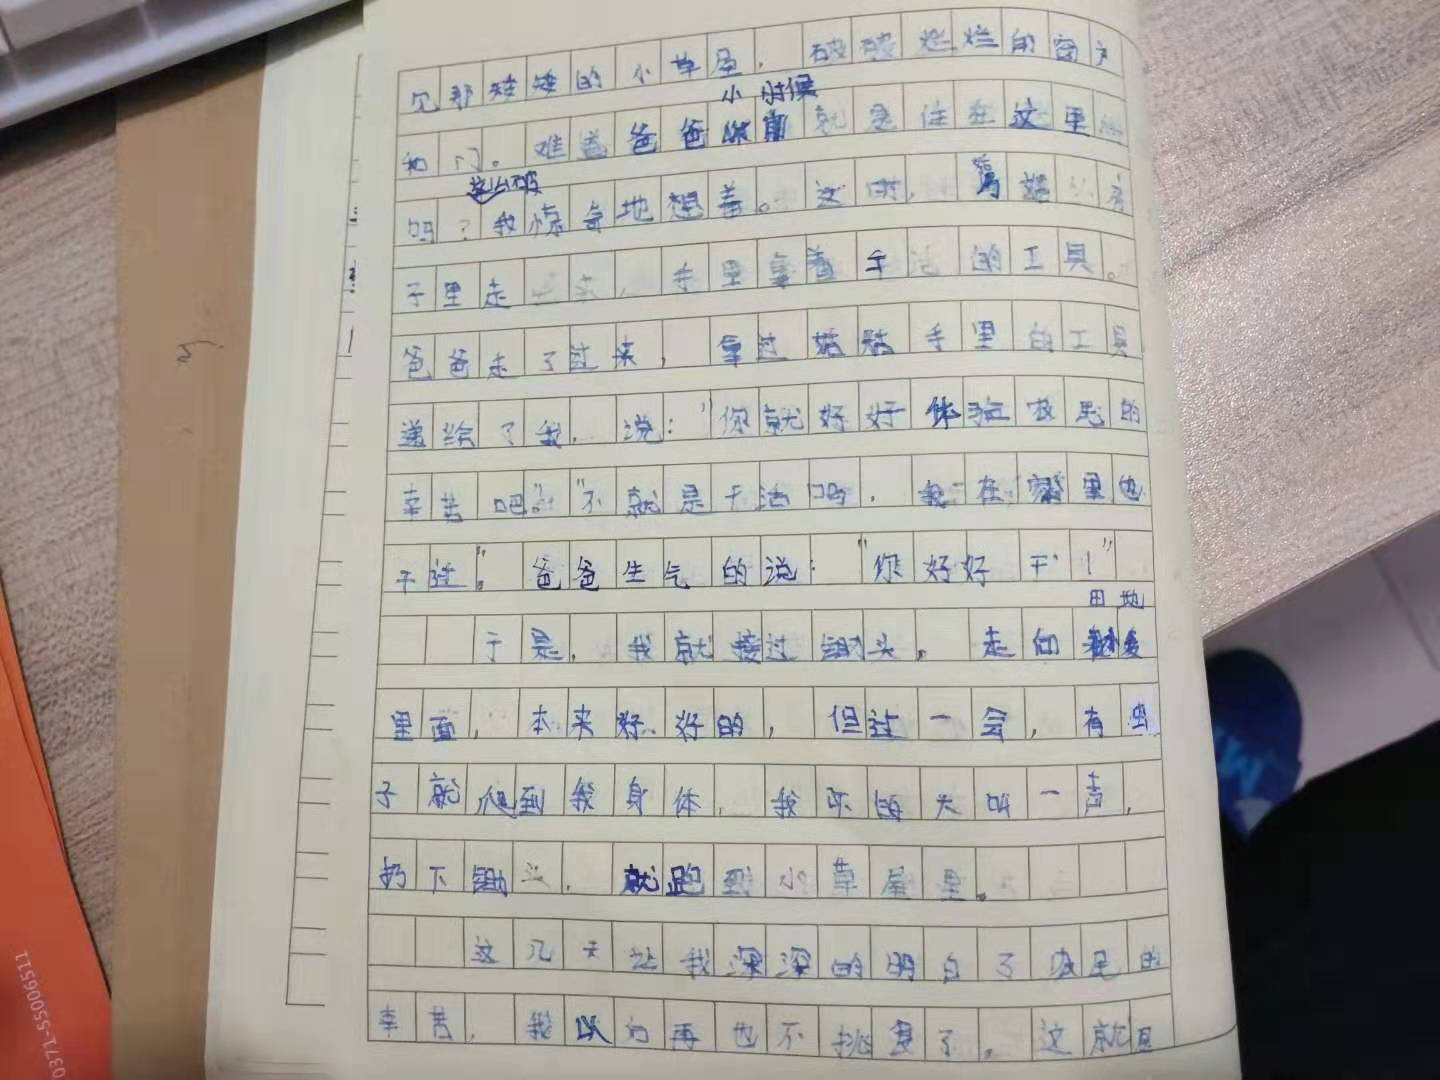 见那矮矮的小草屋，破破烂烂的窗户
小时候
和门。难道爸爸就是住在这里
这么破
吗？我惊奇地想着。这时，从房
子里走出来，手里拿着干活的工具。
爸爸走了过来，拿过姑姑手里的工具
递给了我，说："你就好好体验农民的
辛苦吧！""不就是干活吗，我在家里也
干过。"爸爸生气的说："你好好干！"
田地
于是，我就接过锄头，走向
里面，本来好好的，但过一会，有虫
子就爬到我身体，我吓的大叫一声，
扔下锄头，就跑到小草屋里。
这几天让我深深的明白了农民的
辛苦，我以为再也不挑食了，这就是
0371-55006511